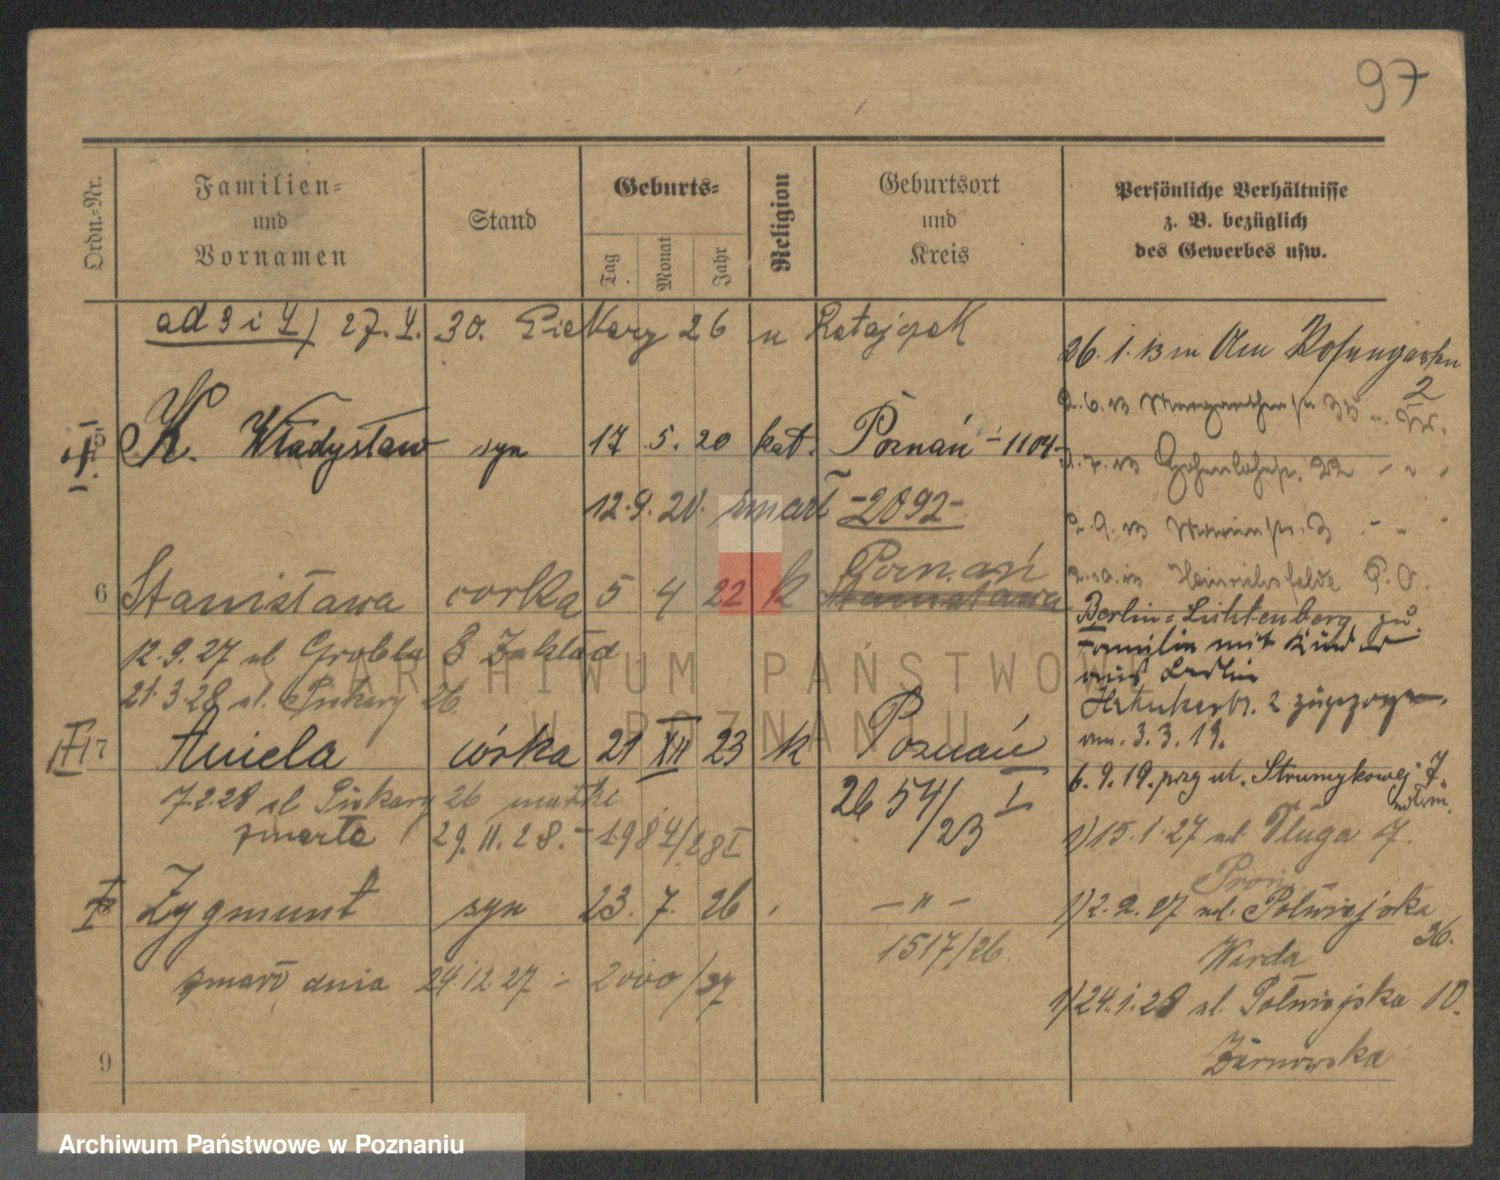 97
Ordn.-Nr.
Familien-
und
Vornamen
Stand
Geburts-
Tag
Monat
Jahr
Religion
Geburtsort
und
Kreis
Persönliche Verhältnisse
z. B. bezüglich
des Gewerbes usw.
ad 3 i 4) 27.4. 30. Piekary 26 u Ratajczak
5 K. Władysław syn 17 5. 20 kat. Poznań - 1104-
12.9.20. zmarł -2092-
6 Stanisława corka 5 4 22 k Poznań
12.9.27 ul Grobla 8 Zakład
21.3.28 ul. Piekary 26.
7 Aniela córka 21 XII 23 k Poznań
7.2.28 ul Piekary 26 matki
2654/23 I
zmarła 29.11.28. - 1984/28 I
Zygmunt syn 23. 7. 26 - " -
1517/26
zmarł dnia 24.12.27 - 2000/27
9
26.1.13 Am Rosengarten
2
33
22
3
Heinrichsfelde P.O.
Berlin-Lichtenberg zu
Familie mit Kinder
aus Berlin
2 zugezogen
am. 3.3.19.
6.9.19. przy ul. Strumykowej 7.
1) 15.1.27 ul Długa 7.
1) 2.2.27 ul. Półwiejska
36.
Warda
1) 24.1.28 ul. Półwiejska 10.
Żarnowska
ARCHIWUM PAŃSTWOWE
W POZNANIU
Archiwum Państwowe w Poznaniu